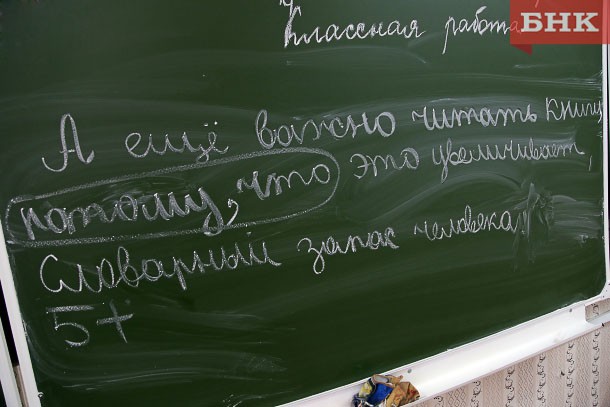 БНК
Классная работа
А ещё важно читать книги
потому, что это увеличивает
словарный запас человека.
5+